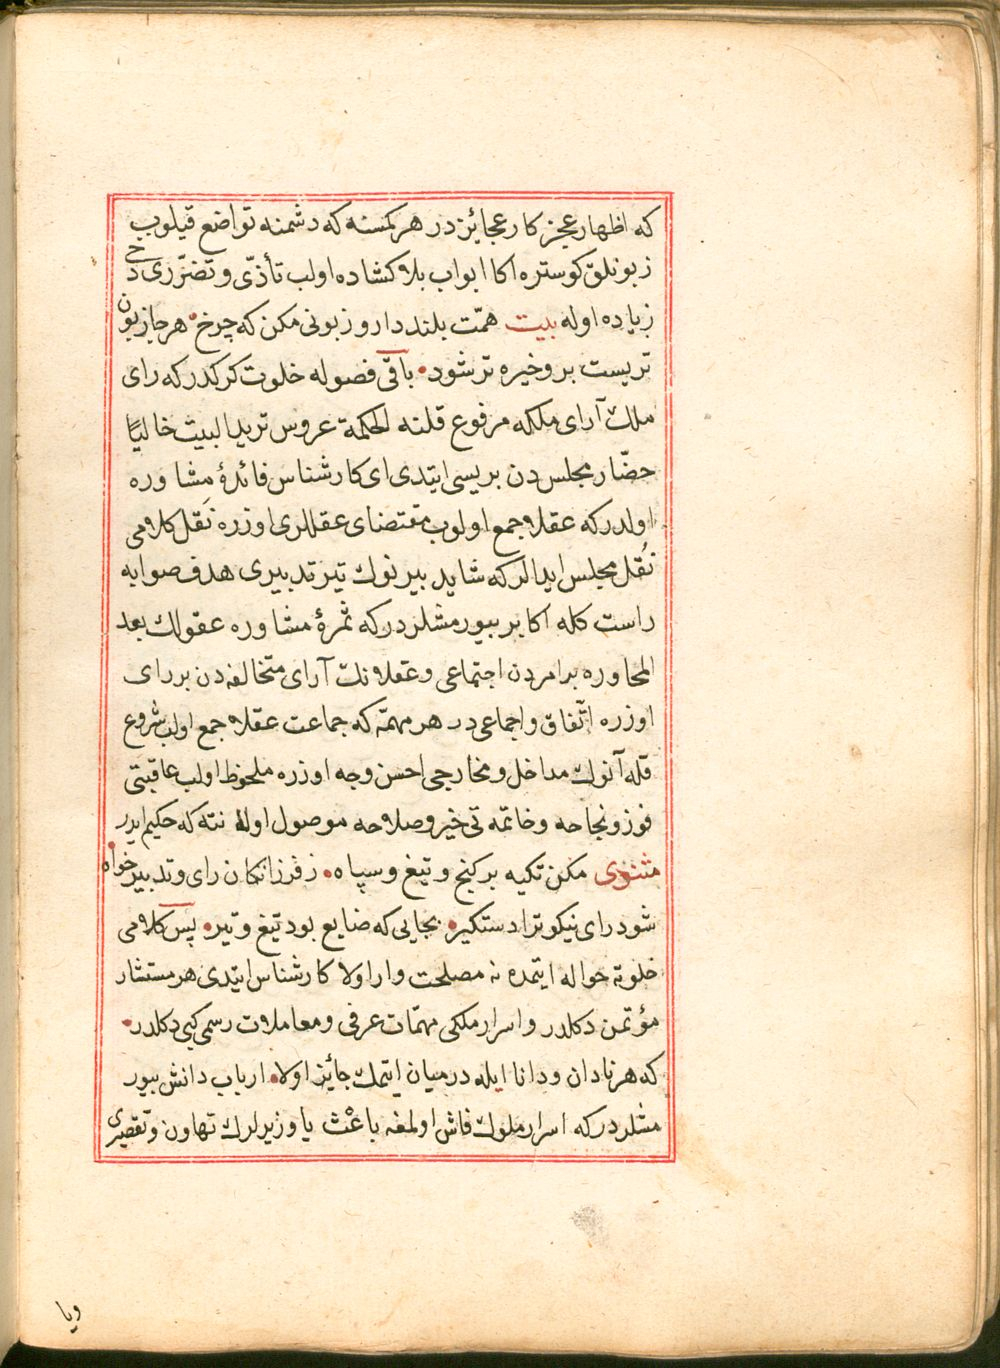 که اظهار عجز کار عجائزدر هر کمسنه که دشمنه تواضع قیلوب
زبونلق کوستره اکا ابواب بلا کشاده اولب تأذّی و تضرّری دخی
زیاده اوله بیت همّت بلند دار و زبونی مکن که چرخ • هرجا زبون
تریست برو خیره تر شود • باقی فصوله خلوت کرکدر که رای
ملك آرای ملکله مرفوع قلنه الحکمة عروس ترید البیت خالیًا
حضّار مجلس دن بریسی ایتدی ای کارشناس فائدهٔ مشاوره
اولدر که عقلا جمع اولوب مقتضای عقللری اوزره نَقل کلامی
نُقل مجلس ایدالر که شاید بیرنوك تیر تدبیری هدف صوابه
راست کله اکابر بیورمشلردر که ثمرهٔ مشاوره عقولك بعد
المحاوره بر امردن اجتماعی و عقلانك آرای متخالفه دن بر رای
اوزره اتّفاق و اجماعی در هر مهمّه که جماعت عقلا جمع اولب شروع
قله آنوك مداخل و مخارجی احسن وجه اوزره ملحوظ اولب عاقبتی
فوز و نجاحه و خاتمه تی خیر و صلاحه موصول اولهٔ نته که حکیم ایدر
مثنوی مکن تکیه بر کنج و تیغ و سپاه • ز فرزانکان رای و تدبیر خواه
شود رای نیکو ترا دستکیر • بجایی که ضایع بود تیغ و تیر • پس کلامی
خلوته حواله ایتمده نه مصلحت وار اولا کارشناس ایتدی هر مستشار
مؤتمن دکلدر و اسرار ملکی مهمّات عرفی و معاملات رسمی کبی دکلدر •
که هر نادان و دانا ایله در میان ایتمك جائز اولا • ارباب دانش بیور
مشلردر که اسرار ملوك فاش اولمغه باعث یا وزیرلرك تهاون و تقصیری
ویا